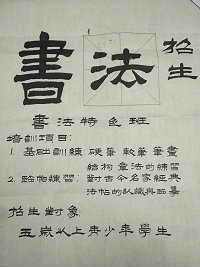 書法 招生
書法特色班
培訓項目:
1. 基础訓練 硬筆 軟筆 筆畫
結构 章法的練習
2. 臨帖練習:對古今名家經典
法帖的认識與臨摹
招生對象
五歲以上青少年學生